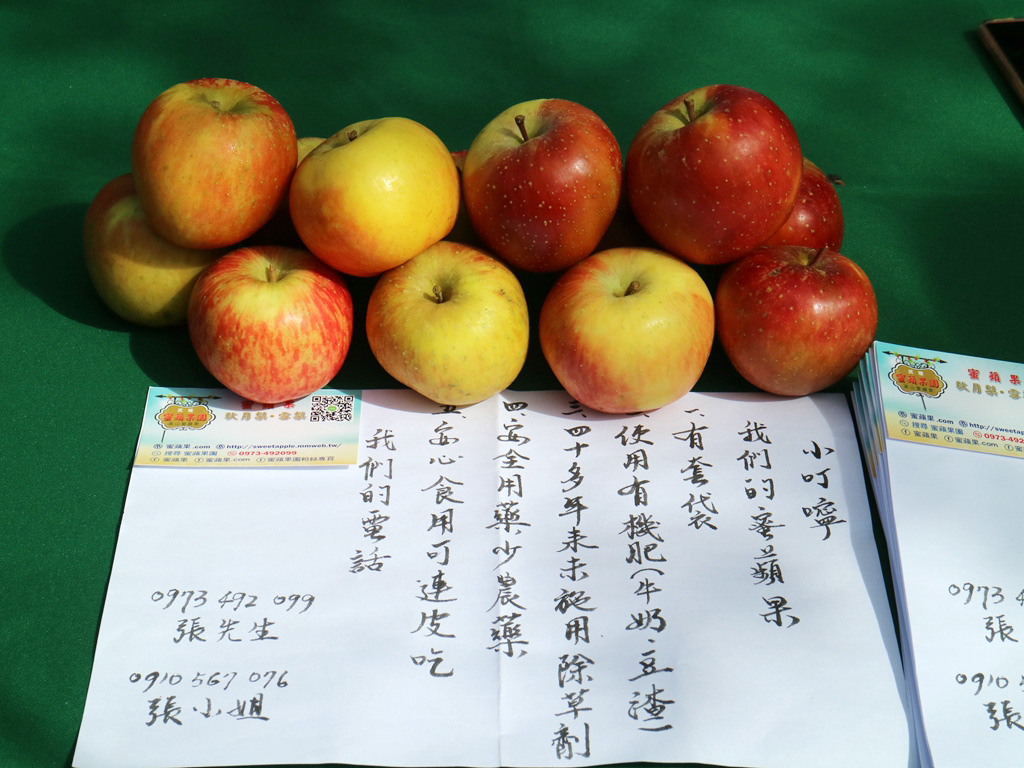 小叮嚀
我們的蜜蘋果
一、有套袋
使用有機肥(牛奶、豆渣)
三、四十多年來未施用除草劑
四、安全用藥少農藥
五、安心食用可連皮吃
我們的電話
0973 492 099
張先生
0910 567 076
張小姐
蜜蘋果園
秋月梨・雪梨
蜜蘋果.com http://sweetapple.mmweb.tw/
搜尋 蜜蘋果園 0973-492099
蜜蘋果 蜜蘋果.com 蜜蘋果園粉絲專頁
蜜蘋果園
蜜蘋果
秋月梨・雪梨
蜜蘋果.com http://sweeta
搜尋 蜜蘋果園 0973-4
蜜蘋果 蜜蘋果.com
0973 4
張
0910 5
張